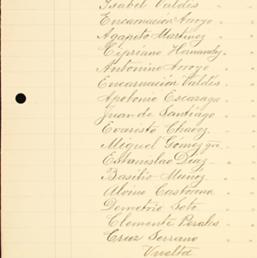 Isabel Valdés
Encarnacion Arroyo
Agapito Martinez
Cipriano Hernandez
Antonino Arroyo
Encarnación Valdés
Apolonio Escarzaga
Juan de Santiago
Evaristo Chavez
Miguel Gómez
Estanislao Diaz
Basilio Muñoz
Demetrio Soto
Clemente Perales
Cruz Serrano
Vuelta